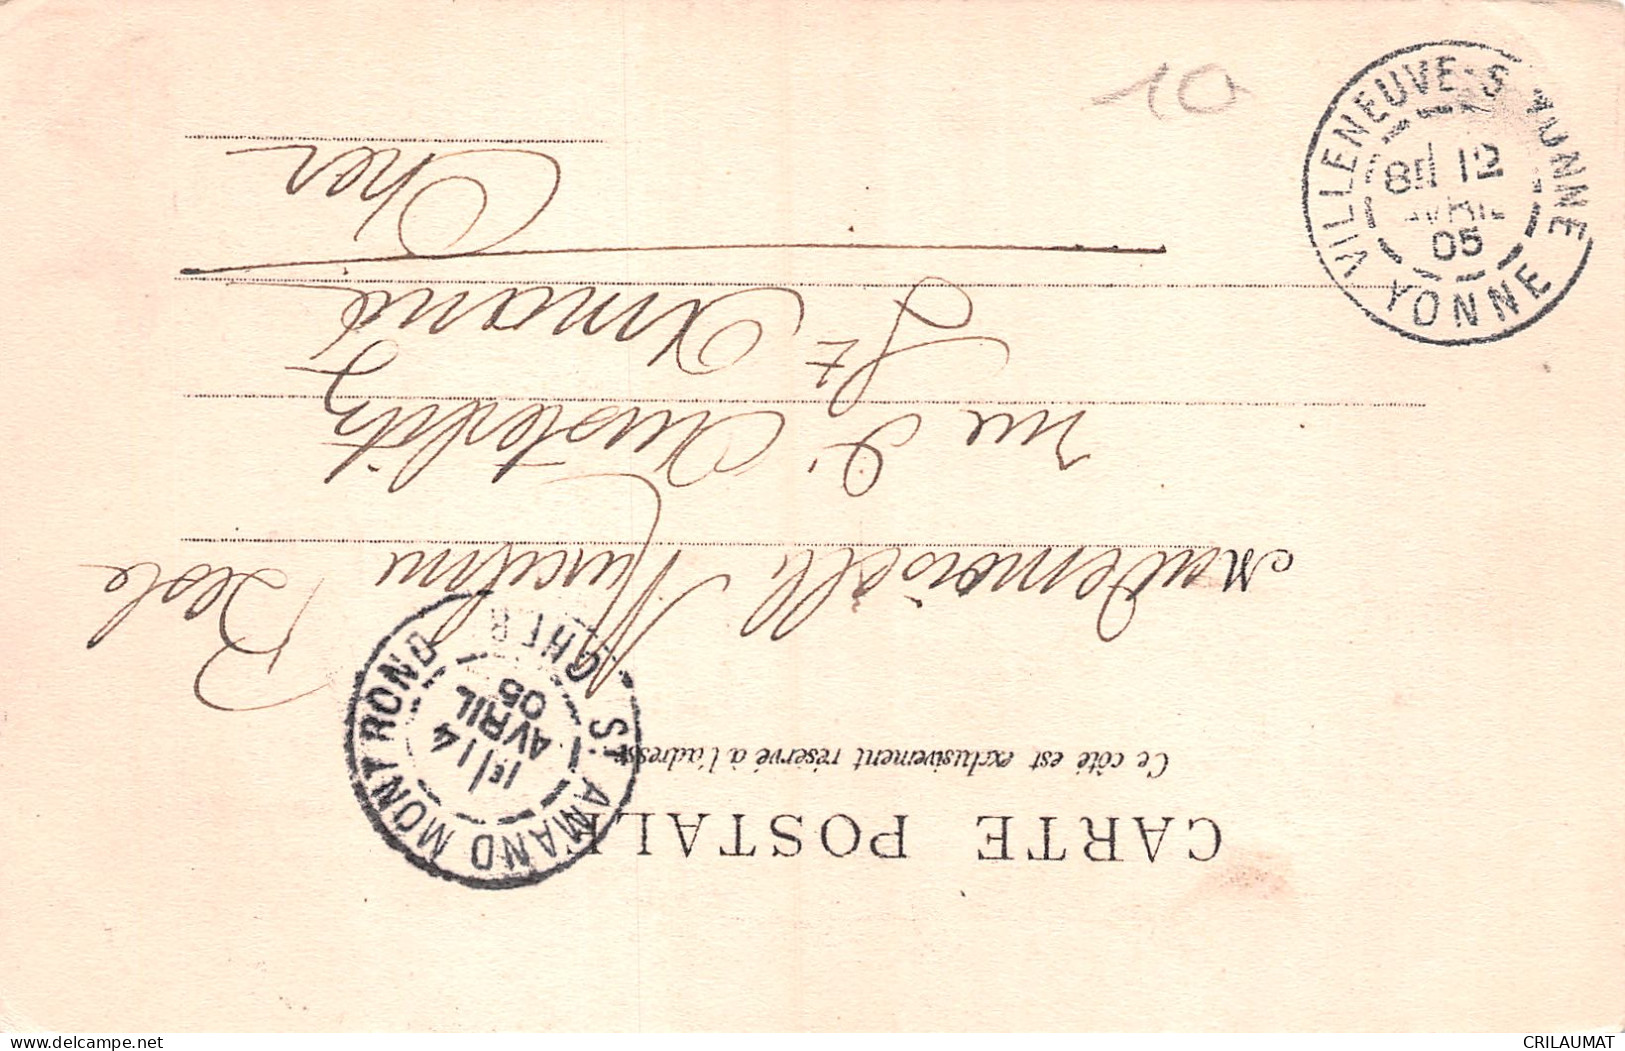 CARTE POSTALE
Ce côté est exclusivement réservé à l'adresse
Mademoiselle Marcelline
rue d'Austerlitz
St Amand
Cher
10
VILLENEUVE-S-YONNE
8E 12
AVRIL
05
YONNE
ST AMAND MONTROND
14
AVRIL
05
CHER
www.delcampe.net
CRILAUMAT